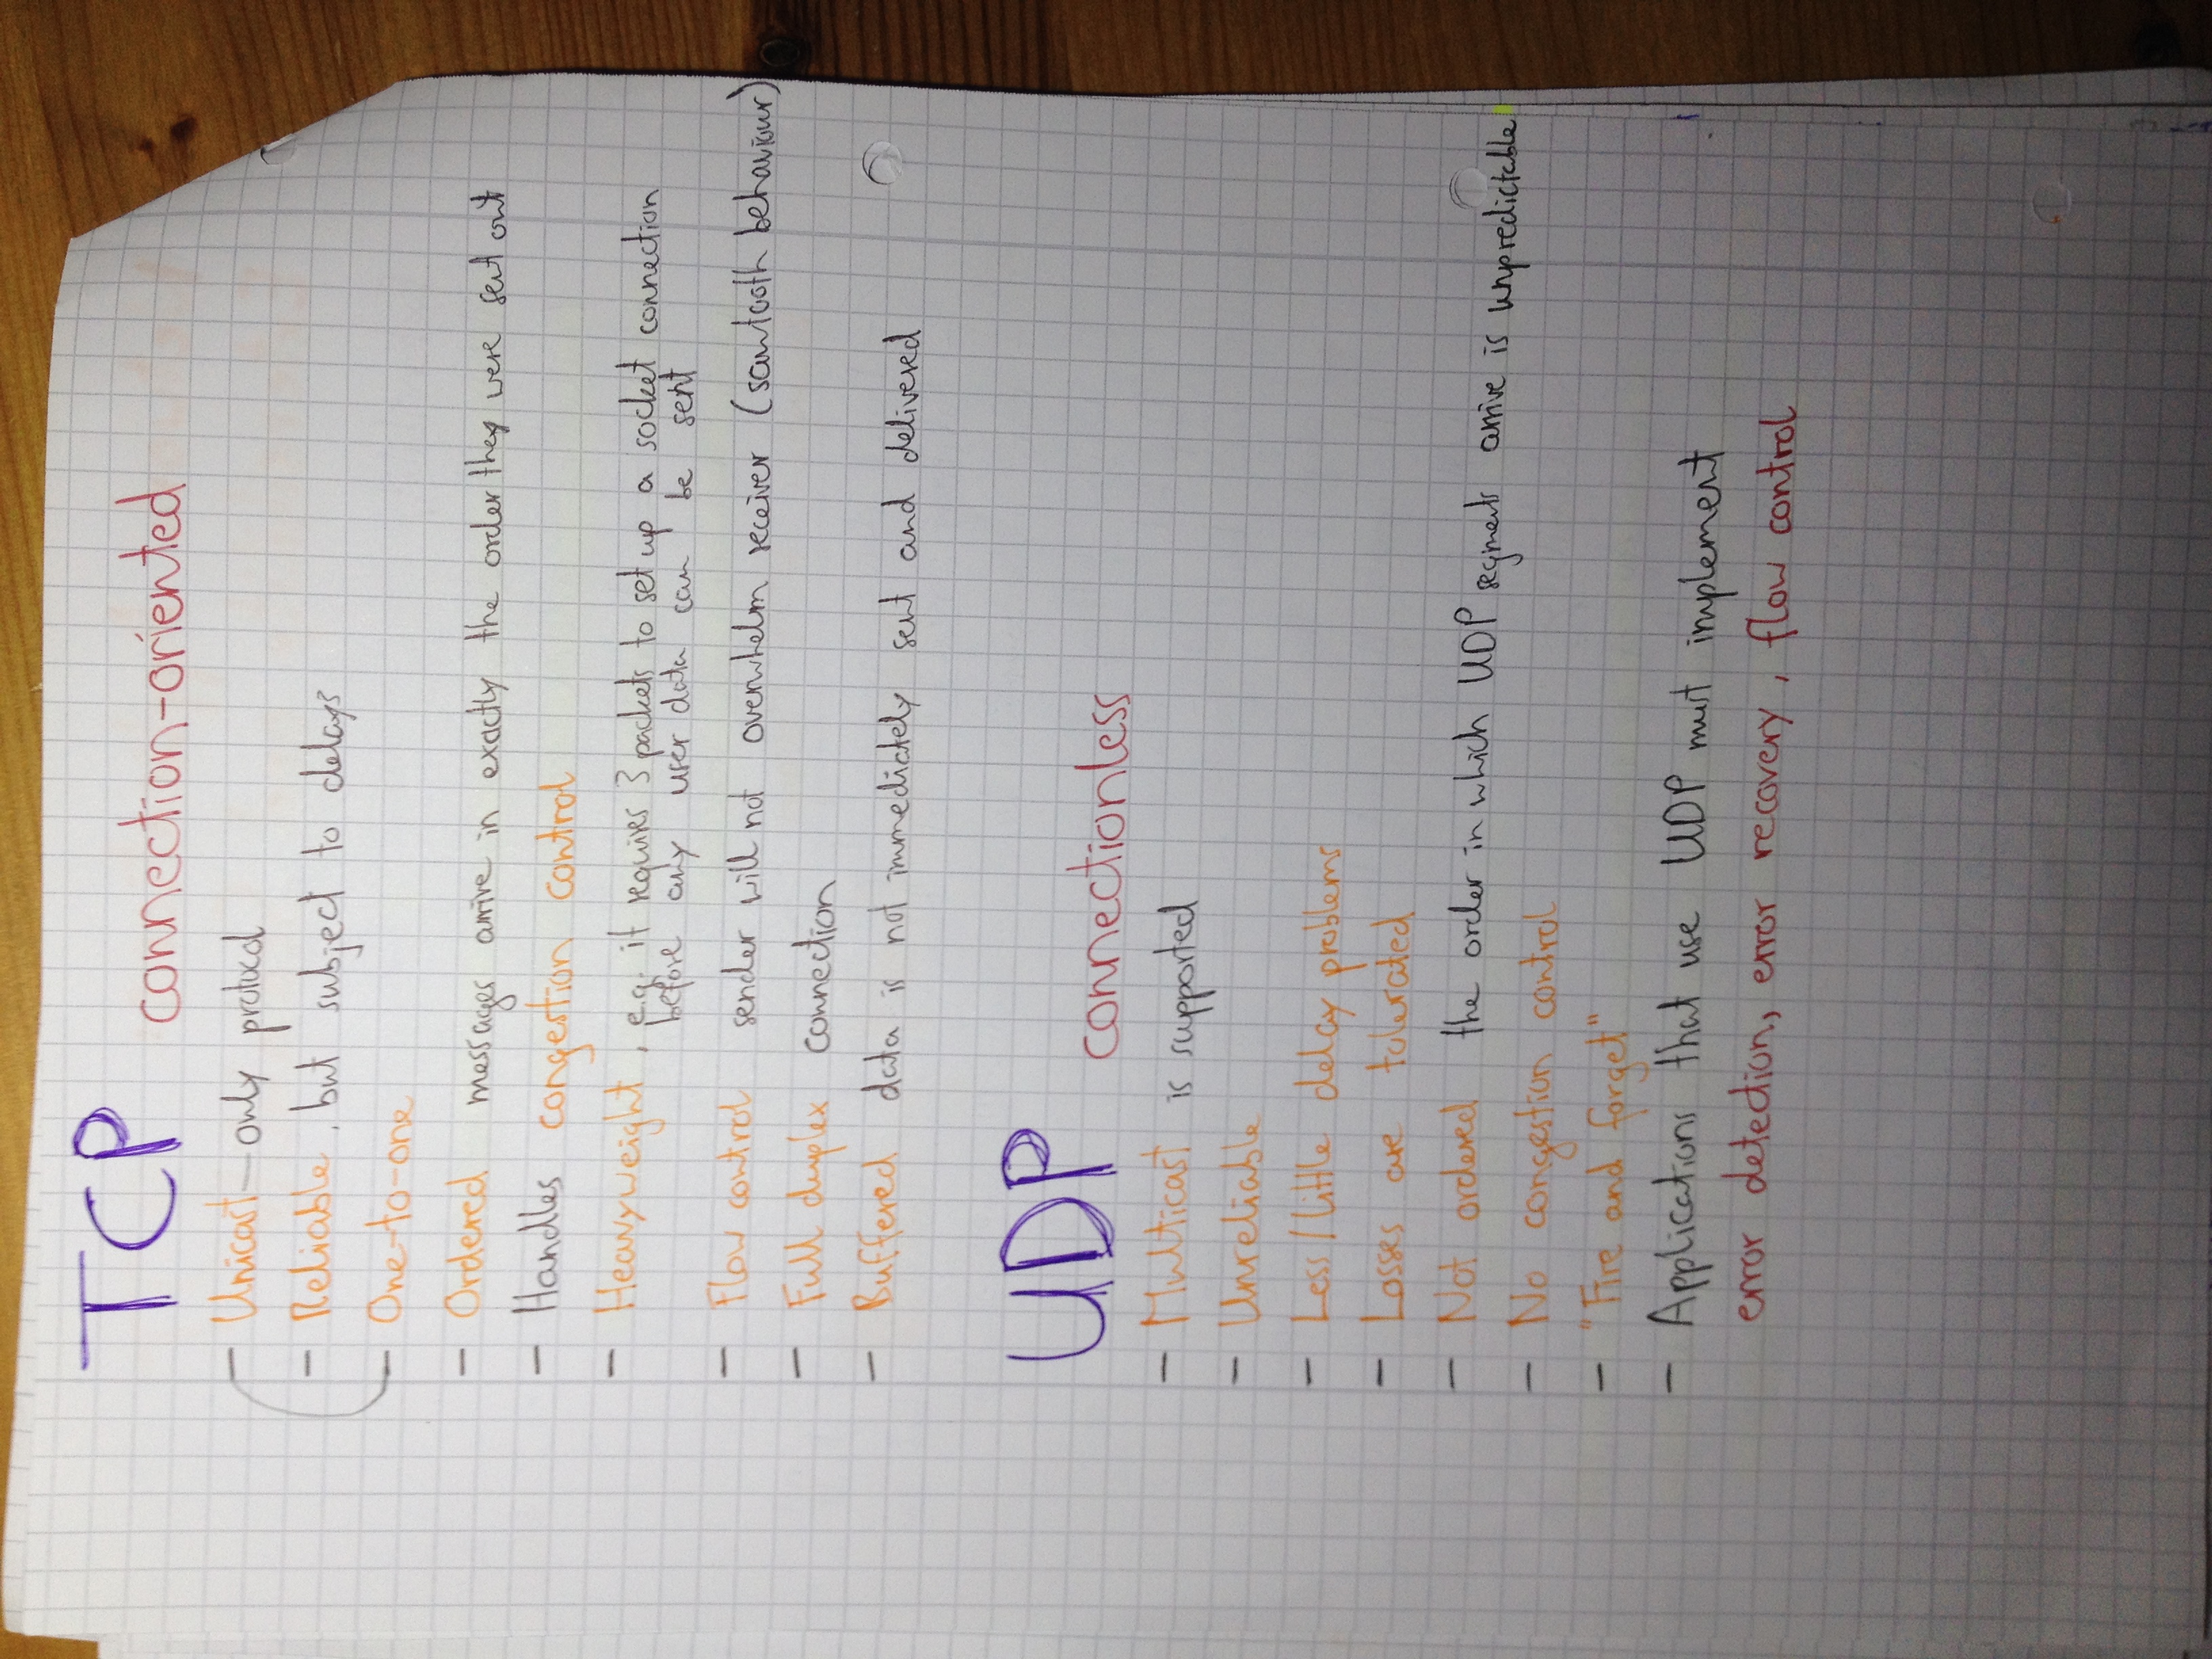 TCP connection-oriented
- Unicast-only protocol
- Reliable, but subject to delays
- One-to-one
- Ordered messages arrive in exactly the order they were sent out
- Handles congestion control
- Heavyweight, e.g. it requires 3 packets to set up a socket connection
before any user data can be sent
- Flow control sender will not overwhelm receiver (sawtooth behaviour)
- Full duplex connection
- Buffered data is not immediately sent and delivered
UDP connectionless
- Multicast is supported
- Unreliable
- Less/little delay problems
- Losses are tolerated
- Not ordered the order in which UDP segments arrive is unpredictable
- No congestion control
- "Fire and forget"
- Applications that use UDP must implement
error detection, error recovery, flow control